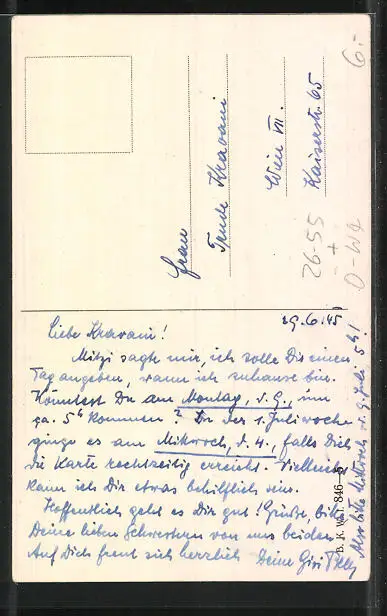 Frau
Trude Kravani
Wien VII.
Kaiserstr. 65
6.-
26-55
+
29.6.45
Liebe Kravani!
Mitzi sagte mir, ich solle Dir einen
Tag angeben, wann ich zuhause bin.
Könntest Du am Montag, d. 9., um
ca. 5h kommen? In der 1. Juliwoche
ginge es am Mittwoch, d. 4., falls Dich
die Karte rechtzeitig erreicht. Vielleicht
kann ich Dir etwas behilflich sein.
Hoffentlich geht es Dir gut! Grüße bitte
Deine lieben Schwestern von uns beiden.
Auf Dich freut sich herzlich Deine Gisi
Also bitte Mittwoch, 5h!
B. K. W. I. 846